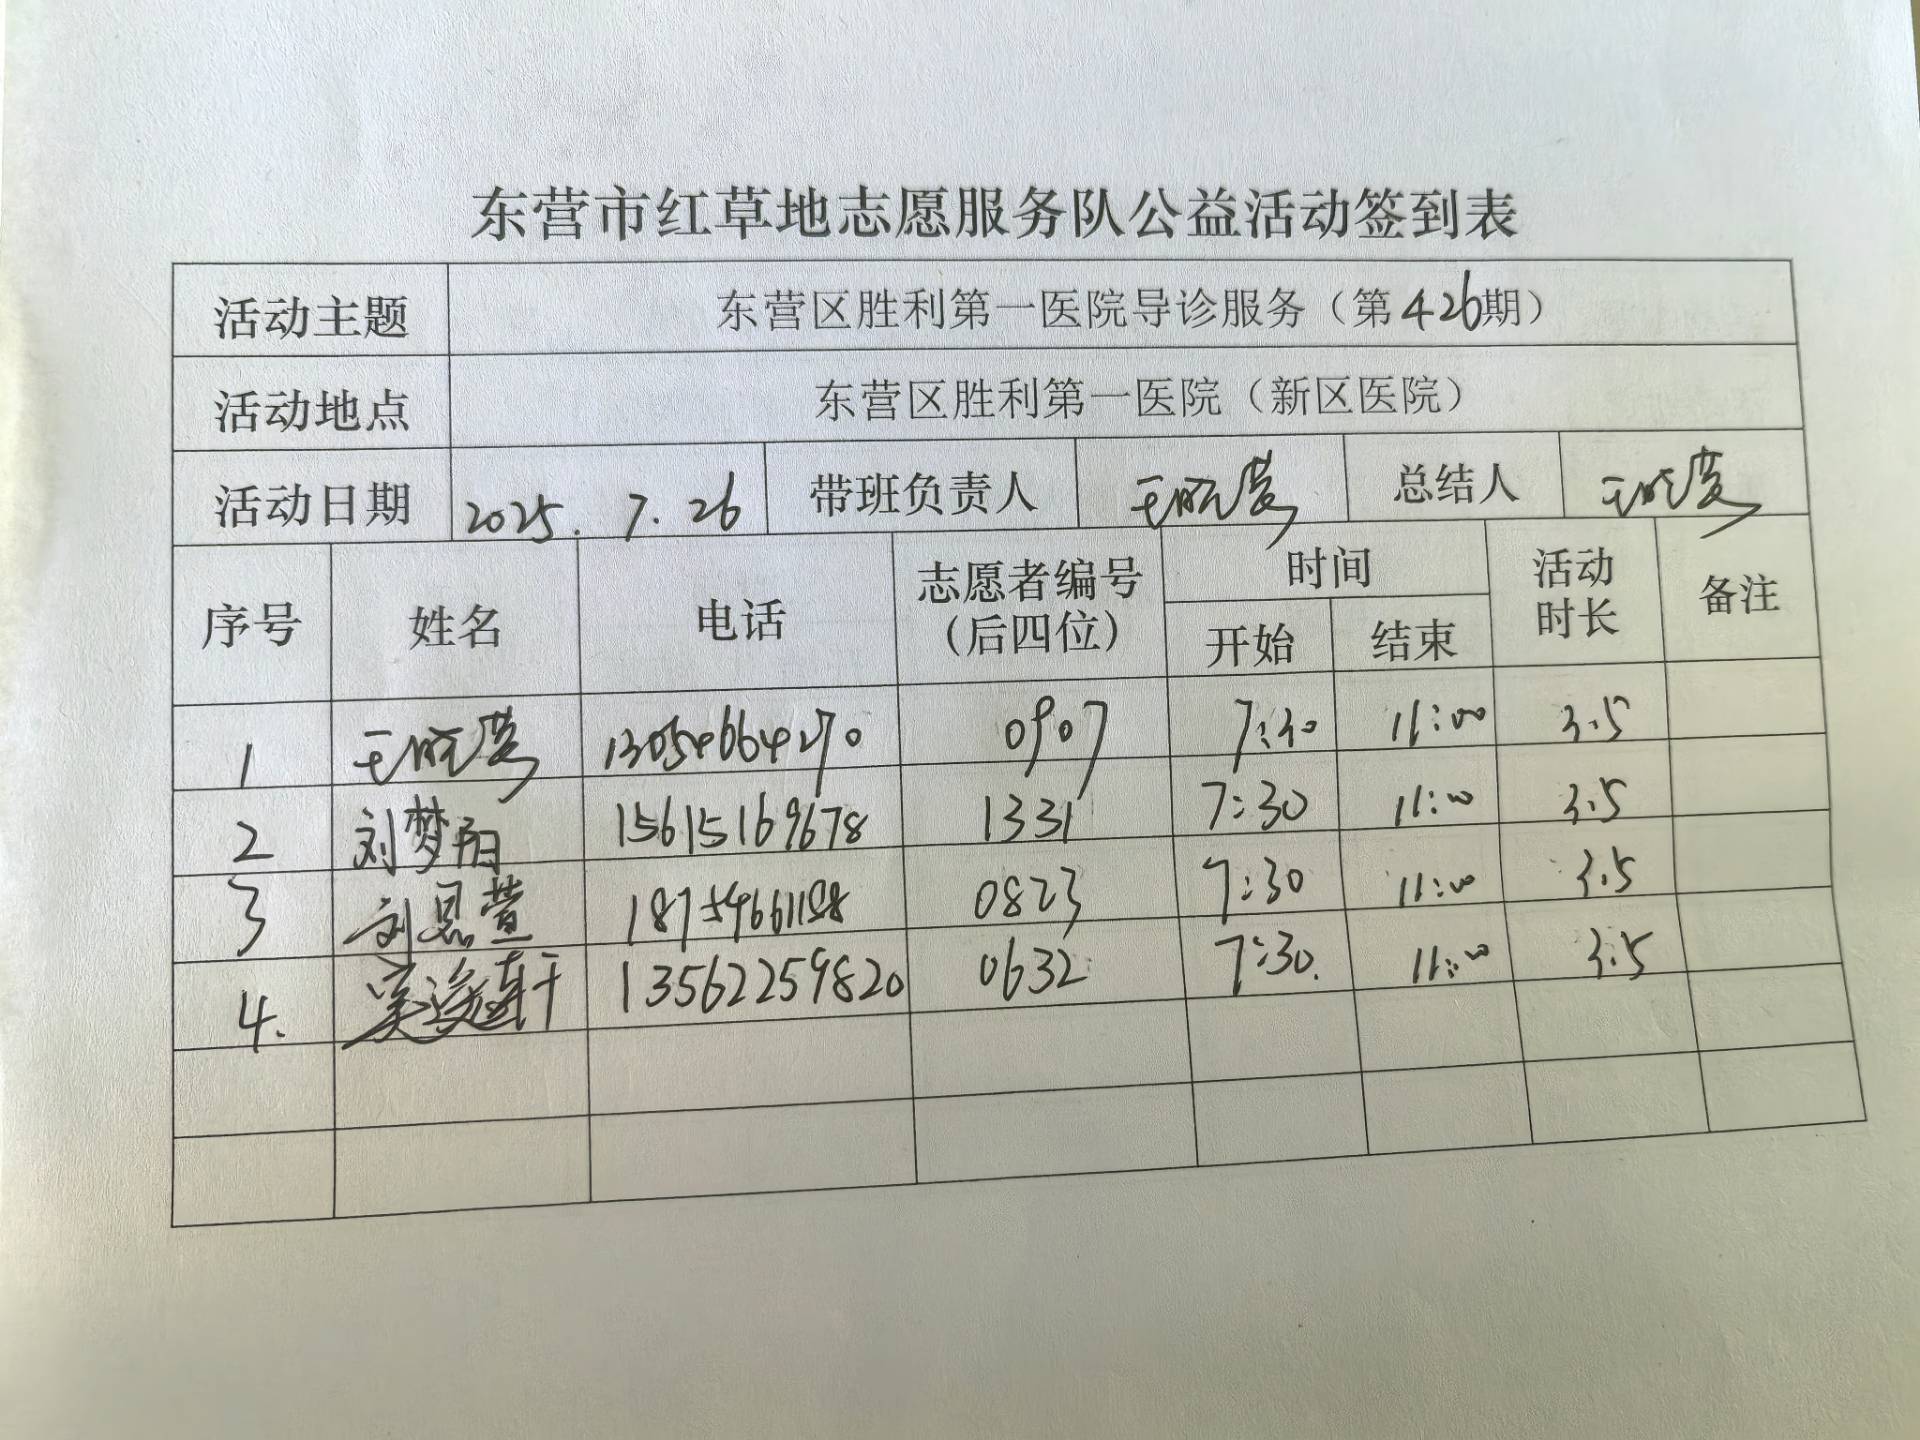 东营市红草地志愿服务队公益活动签到表
活动主题 东营区胜利第一医院导诊服务（第426期）
活动地点 东营区胜利第一医院（新区医院）
活动日期 2025.7.26 带班负责人 王晓莺 总结人 王晓莺
序号 姓名 电话 志愿者编号（后四位） 时间 开始 结束 活动时长 备注
1 王晓莺 13054664270 0907 7:30 11:00 3.5
2 刘梦阳 15615169678 1331 7:30 11:00 3.5
3 刘恩萱 0823 7:30 11:00 3.5
4. 轩 13562259820 0632 7:30. 11:00 3.5